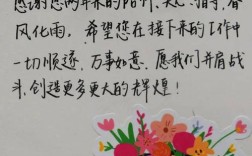 感谢您两年来的陪伴、关心、指导，春
风化雨，希望您在接下来的工作中
一切顺遂，万事如意，愿我们并肩战
斗，创造更多更大的辉煌！